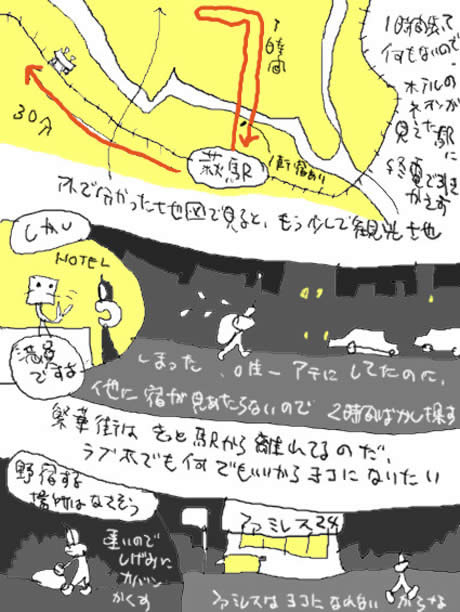 1時間歩いて
何もないので、
ホテルの
ネオンが
見えた駅に
終電で引き
かえす
1時間
30分
萩駅
1街宿あり
水で分かった地図で見ると、もう少しで観光地
しかし
HOTEL
満員
ですよ
しまった、唯一アテにしてたのに、
他に宿が見あたらないので 2時間ばかし探す
繁華街はきっと駅から離れてるのだ、
ラブホでも何でもいいからヨコになりたい
野宿する
場所はなさそう
重いので
しげみに
カバン
かくす
ファミレス24
ファミレスはヨコになれない からなあ